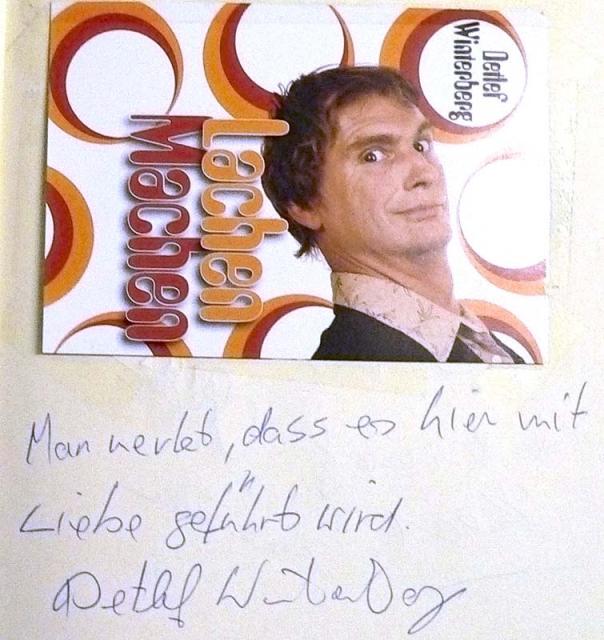 Detlef
Winterberg
Lachen
Machen
Man merkt, dass es hier mit
Liebe geführt wird.
Detlef Winterberg